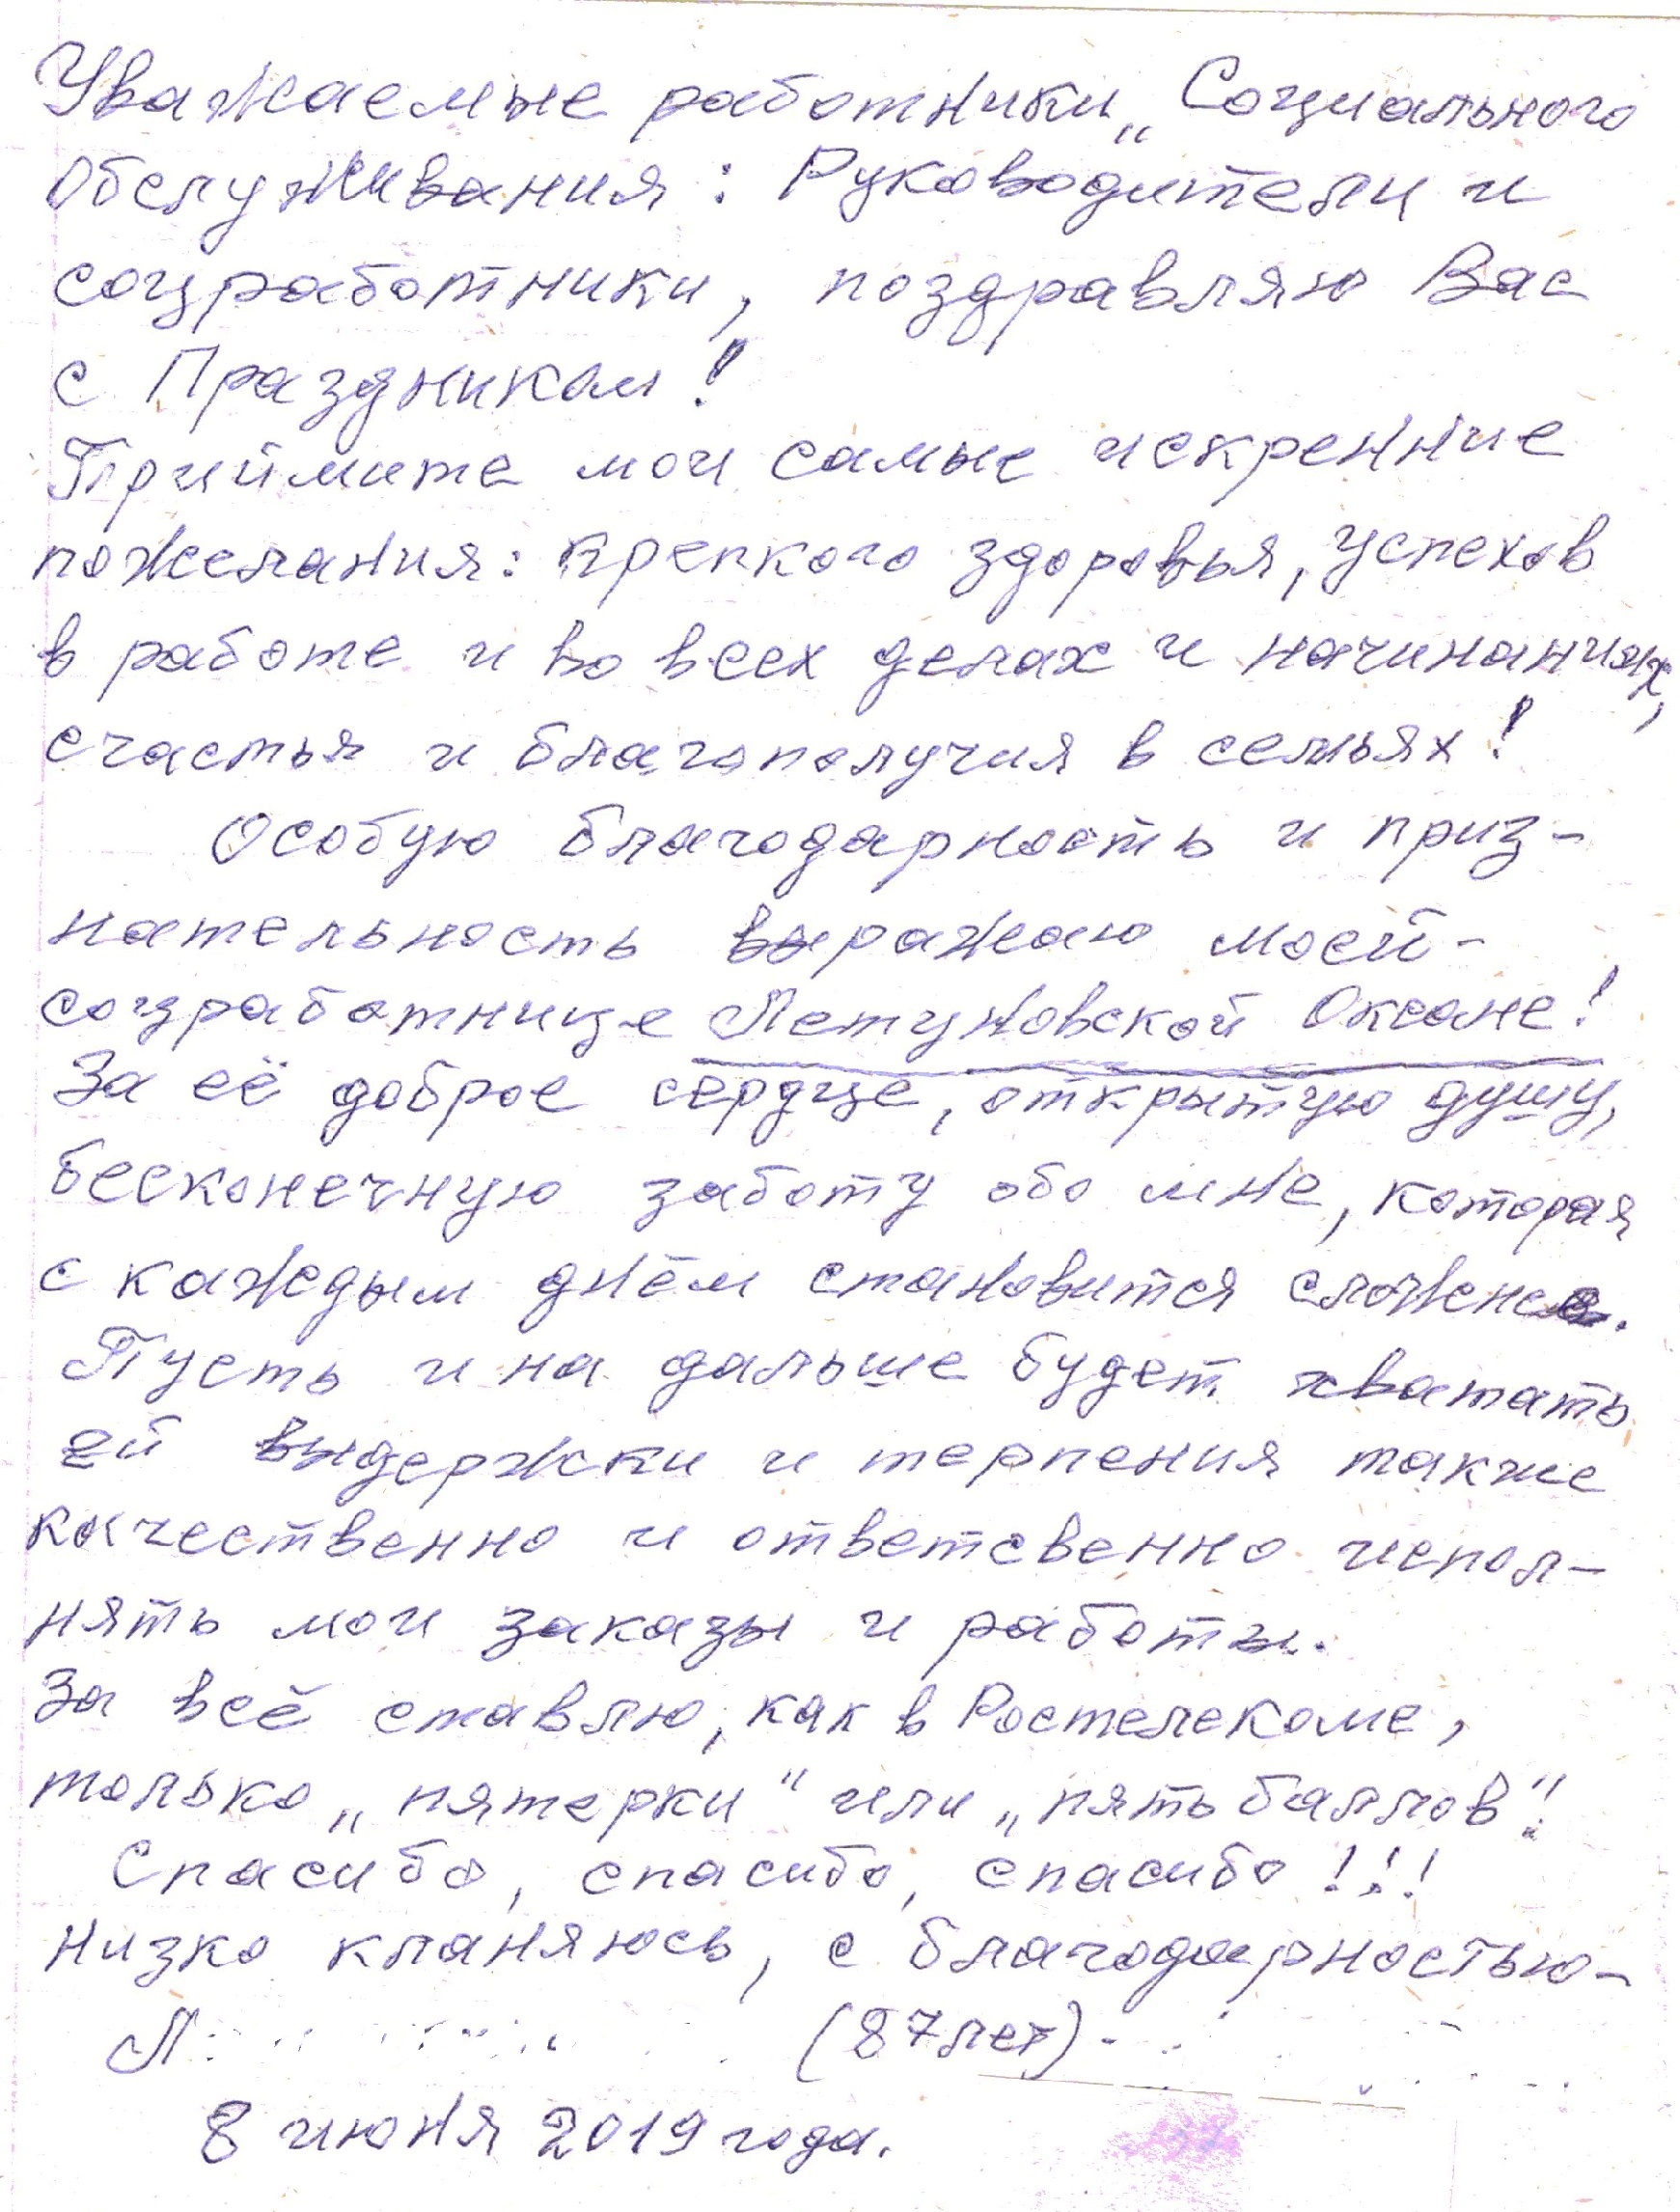 Уважаемые работники „Социального
обслуживания: Руководители и
соцработники, поздравляю Вас
с Праздником!
Приймите мои самые искренние
пожелания: крепкого здоровья, успехов
в работе и во всех делах и начинаниях,
счастья и благополучия в семьях!
Особую благодарность и приз-
нательность выражаю моей-
соцработнице Летуновской Оксане!
За её доброе сердце, открытую душу,
бесконечную заботу обо мне, которая
с каждым днём становится сложнее.
Пусть и на дальше будет хватать
ей выдержки и терпения также
качественно и ответсвенно испол-
нять мои заказы и работы.
За всё ставлю, как в Ростелекоме,
только „пятерки" или „пять баллов"!
Спасибо, спасибо, спасибо!!!
Низко кланяюсь, с благодарностью-
Л (87 лет)-
8 июня 2019 года.